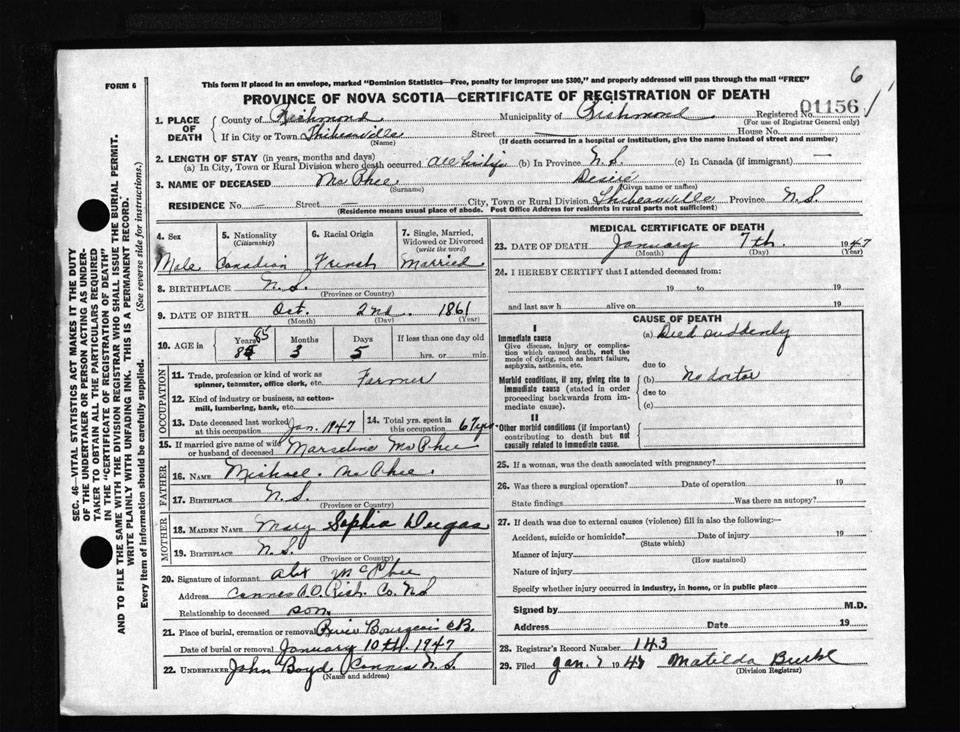 FORM 6
This form if placed in an envelope, marked "Dominion Statistics—Free, penalty for improper use $300," and properly addressed will pass through the mail "FREE"
6
PROVINCE OF NOVA SCOTIA—CERTIFICATE OF REGISTRATION OF DEATH
1. PLACE OF DEATH { County of Richmond Municipality of Richmond Registered No. 01156
(For use of Registrar General only)
If in City or Town Thibeauville Street — House No.
(Name) (If death occurred in a hospital or institution, give the name instead of street and number)
2. LENGTH OF STAY (in years, months and days)
(a) In City, Town or Rural Division where death occurred all his life (b) In Province N.S. (c) In Canada (if immigrant) —
3. NAME OF DECEASED McPhee Desiré
(Surname) (Given name or names)
RESIDENCE No. — Street — City, Town or Rural Division Thibeauville Province N.S.
(Residence means usual place of abode. Post Office Address for residents in rural parts not sufficient)
4. Sex
Male
5. Nationality
(Citizenship)
Canadian
6. Racial Origin
French
7. Single, Married, Widowed or Divorced
(write the word)
Married
8. BIRTHPLACE N.S.
(Province or Country)
9. DATE OF BIRTH Oct. 2nd. 1861
(Month) (Day) (Year)
10. AGE in Years Months Days If less than one day old
85 3 5 hrs. or min.
OCCUPATION
11. Trade, profession or kind of work as spinner, teamster, office clerk, etc. Farmer
12. Kind of industry or business, as cotton-mill, lumbering, bank, etc.
13. Date deceased last worked at this occupation Jan. 1947
14. Total yrs. spent in this occupation 67 yrs.
15. If married give name of wife or husband of deceased Marseline McPhee
FATHER
16. NAME Michael McPhee.
17. BIRTHPLACE N.S.
MOTHER
18. MAIDEN NAME Mary Sophia Dugas
19. BIRTHPLACE N.S.
(Province or Country)
20. Signature of informant Alex McPhee
Address Cannes P.O. Rich. Co. N.S
Relationship to deceased son
21. Place of burial, cremation or removal River Bourgeois C.B.
Date of burial or removal January 10th. 1947
22. UNDERTAKER John Boyd Cannes N.S.
(Name and address)
MEDICAL CERTIFICATE OF DEATH
23. DATE OF DEATH January 7th. 1947
(Month) (Day) (Year)
24. I HEREBY CERTIFY that I attended deceased from:
19 to 19
and last saw h alive on 19
CAUSE OF DEATH
I
Immediate cause
Give disease, injury or complication which caused death, not the mode of dying, such as heart failure, asphyxia, asthenia, etc.
(a) Died suddenly
due to
Morbid conditions, if any, giving rise to immediate cause (stated in order proceeding backwards from immediate cause).
(b) No doctor
due to
(c)
II
Other morbid conditions (if important) contributing to death but not causally related to immediate cause.
25. If a woman, was the death associated with pregnancy?
26. Was there a surgical operation? Date of operation 19
State findings Was there an autopsy?
27. If death was due to external causes (violence) fill in also the following:—
Accident, suicide or homicide? Date of injury 19
(State which)
Manner of injury
(How sustained)
Nature of injury
Specify whether injury occurred in industry, in home, or in public place
Signed by M.D.
Address Date 19
28. Registrar's Record Number 143
29. Filed Jan. 7 1947 Matilda Burke
(Division Registrar)
SEC. 46—VITAL STATISTICS ACT MAKES IT THE DUTY
OF THE UNDERTAKER OR PERSON ACTING AS UNDER-
TAKER TO OBTAIN ALL THE PARTICULARS REQUIRED
IN THE "CERTIFICATE OF REGISTRATION OF DEATH"
AND TO FILE THE SAME WITH THE DIVISION REGISTRAR WHO SHALL ISSUE THE BURIAL PERMIT.
WRITE PLAINLY WITH UNFADING INK. THIS IS A PERMANENT RECORD.
Every item of information should be carefully supplied. (See reverse side for instructions.)